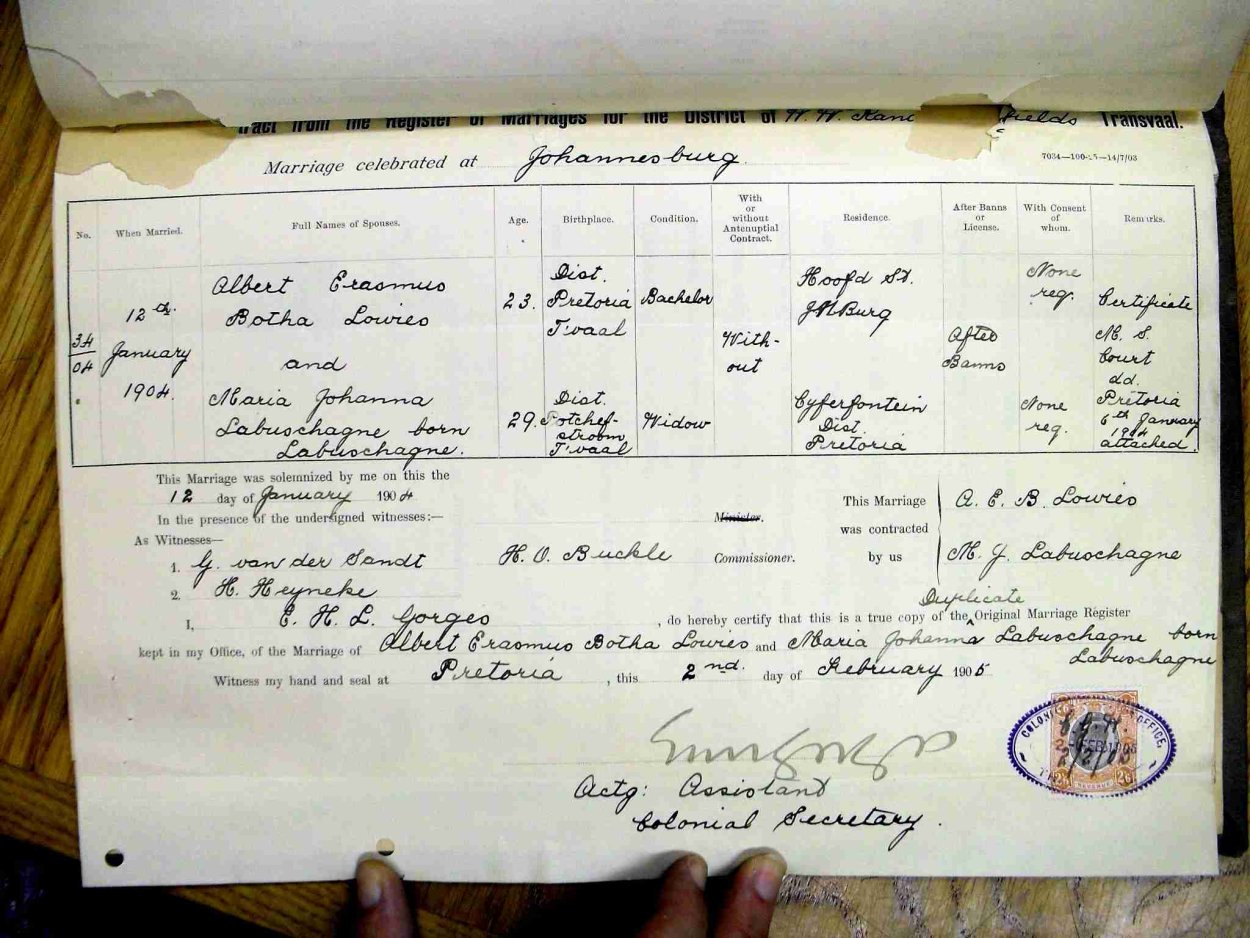 tract from the Register of Marriages for the District of W. W. Rand fields Transvaal.
Marriage celebrated at Johannesburg.
7034—100-25—14/7/03
No. When Married. Full Names of Spouses. Age. Birthplace. Condition. With or without Antenuptial Contract. Residence. After Banns or License. With Consent of whom. Remarks.
34/04
12th. January 1904.
Albert Erasmus
Botha Lowies
23.
Dist. Pretoria T'vaal
Bachelor
Hoofd St. JHBurg
None req.
and
With-out
After Banns
Maria Johanna
Labuschagne born
Labuschagne.
29.
Dist. Potchef-stroom T'vaal
Widow
Cyferfontein Dist. Pretoria
None req.
Certificate M. S. Court dd. Pretoria 6th January 1904 attached.
This Marriage was solemnized by me on this the
12 day of January 1904
In the presence of the undersigned witnesses:—
As Witnesses—
1. G. van der Sandt
2. H. Heyneke
H. O. Buckle
Minister.
Commissioner.
This Marriage was contracted by us
A. E. B. Lowies
M. J. Labuschagne
Duplicate
I, E. H. L. Gorges, do hereby certify that this is a true copy of the Original Marriage Register
kept in my Office, of the Marriage of Albert Erasmus Botha Lowies and Maria Johanna Labuschagne born
Labuschagne
Witness my hand and seal at Pretoria, this 2nd. day of February 1905
Actg: Assistant
Colonial Secretary.